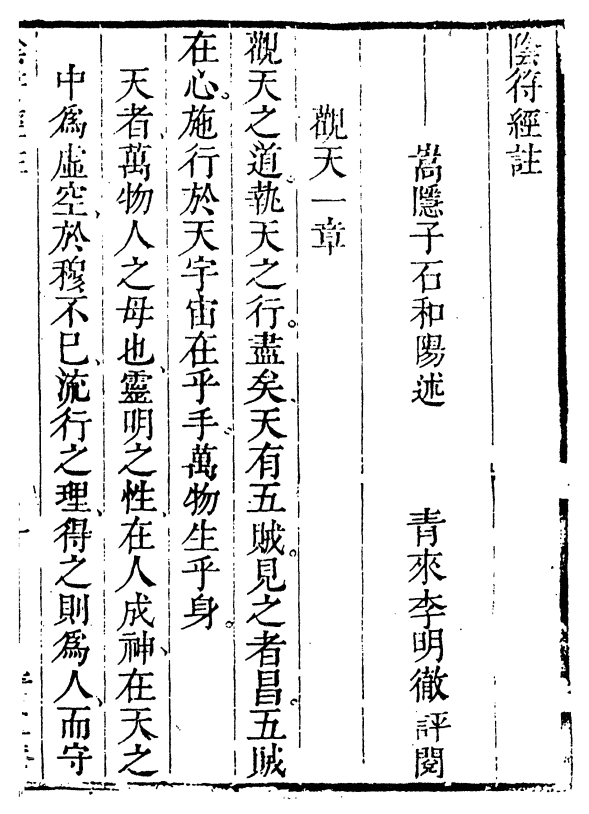 陰符經註
嵩隱子石和陽述　青來李明徹評閱
觀天一章
觀天之道。執天之行。盡矣、天有五賊。見之者昌。五賊
在心。施行於天、宇宙在乎手。萬物生乎身。
天者、萬物人之母也、靈明之性、在人成神、在天之
中爲虛空、於穆不已、流行之理、得之則爲人、而守